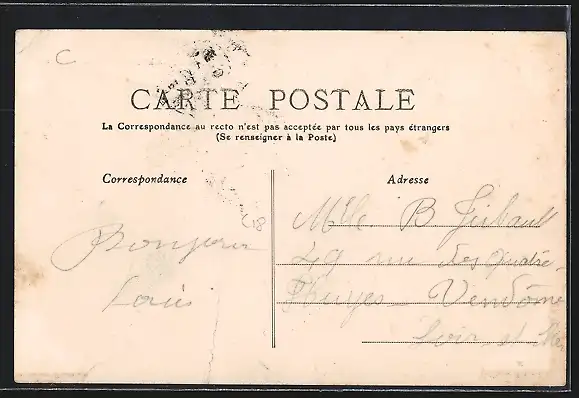 C
CARTE POSTALE
La Correspondance au recto n'est pas acceptée par tous les pays étrangers
(Se renseigner à la Poste)
Correspondance
Adresse
Mlle B
49 rue des Quatre
Bonjour
Huyes Vendôme
Louis
Loir et Cher